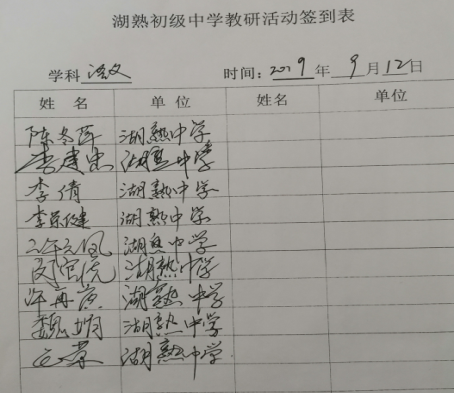 湖熟初级中学教研活动签到表
学科 语文 时间：2019 年 9 月 12 日
姓名 单位 姓名 单位
陈冬辉 湖熟中学
李建忠 湖熟中学
李倩 湖熟中学
李荣健 湖熟中学
湖熟中学
湖熟中学
湖熟中学
魏娟 湖熟中学
湖熟中学